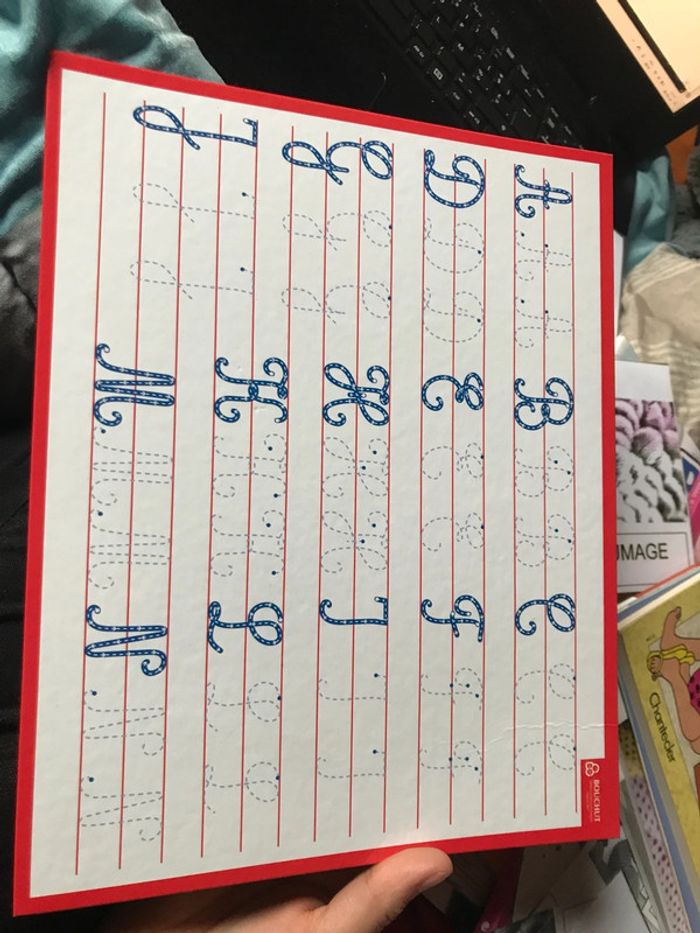 A B C
D E F
G H I
J K L
M N
BOUCHUT
UMAGE
Chantecler